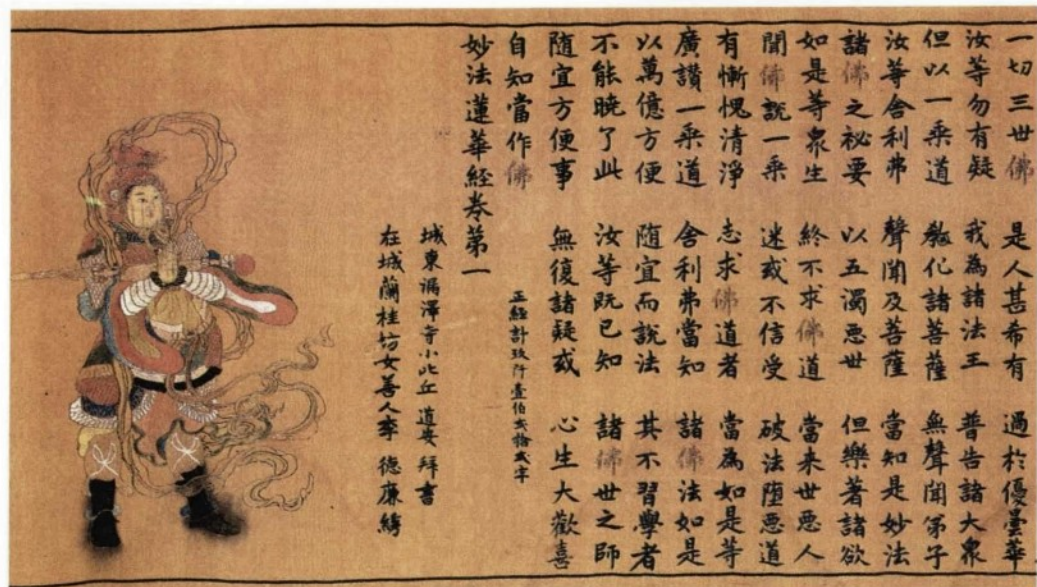 一切三世佛 是人甚希有 過於優曇華
汝等勿有疑 我為諸法王 普告諸大衆
但以一乗道 教化諸菩薩 無聲聞弟子
汝等舍利弗 聲聞及菩薩 當知是妙法
諸佛之祕要 以五濁惡世 但樂著諸欲
如是等衆生 終不求佛道 當来世惡人
聞佛說一乗 迷或不信受 破法墮惡道
有慚愧清淨 志求佛道者 當為如是等
廣讚一乗道 舍利弗當知 諸佛法如是
以萬億方便 隨宜而說法 其不習學者
不能曉了此 汝等既已知 諸佛世之師
隨宜方便事 無復諸疑或 心生大歡喜
自知當作佛
正經計玖阡壹伯貳拾貳字
妙法蓮華經卷第一
城東漏澤寺小比丘 道安 拜書
在城蘭桂坊女善人李 德廉 繡